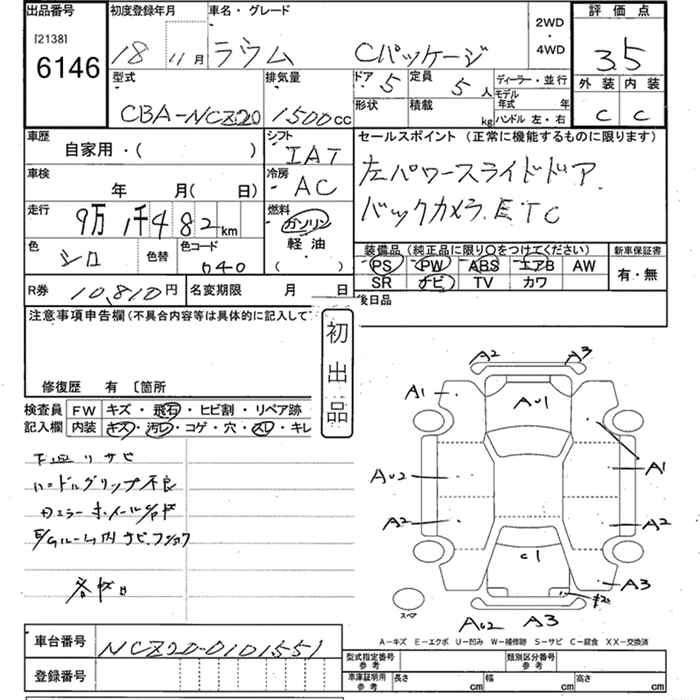 出品番号 初度登録年月 車名・グレード 2WD・4WD 評価点
[2138]
6146
18 11月 ラウム Cパッケージ 3.5
型式 排気量 ドア 5 定員 5人 ディーラー・並行 外装 内装
モデル年式 年
CBA-NCZ20 1500cc 形状 積載 kg ハンドル 左・右 C C
車歴 シフト セールスポイント (正常に機能するものに限ります)
自家用・( ) IAT
左パワースライドドア.
車検 冷房
年 月( 日) AC
バックカメラ.ETC
走行 燃料
9万 1千482km ガソリン
色 シロ 色替 色コード 040 軽油 ( )
装備品 (純正品に限り○をつけてください) 新車保証書
PS PW ABS エアB AW 有・無
SR ナビ TV カワ
R券 10,810円 名変期限 月 日 後日品
注意事項申告欄(不具合内容等は具体的に記入して
初出品
修復歴 有 〔箇所
検査員記入欄 FW キズ・飛石・ヒビ割・リペア跡
内装 キズ・汚レ・コゲ・穴・スレ・キレ
下回リサビ
ハンドルグリップ不良
A2 A3
A1 AU1
A1
AU2
A2 A2
C1
A3
スペア
AU2 A3
A-キズ E-エクボ U-凹み W-補修跡 S-サビ C-腐食 XX-交換済
車台番号 NCZ20-0101551
登録番号
型式指定番号参考 類別区分番号参考
車庫証明用参考 長さ cm 幅 cm 高さ cm